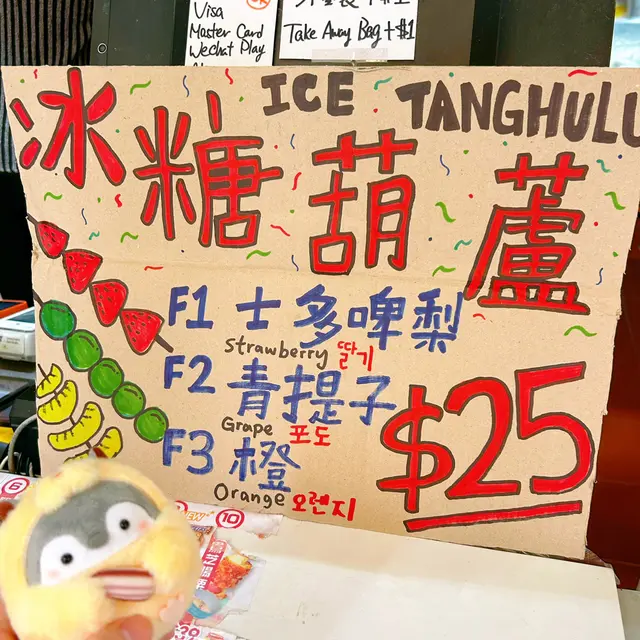 Visa
Master Card
Wechat Play
Take Away Bag + $1
ICE TANGHULU
冰糖葫蘆
F1 士多啤梨
Strawberry 딸기
F2 青提子
Grape 포도
F3 橙
Orange 오렌지
$25
6
10